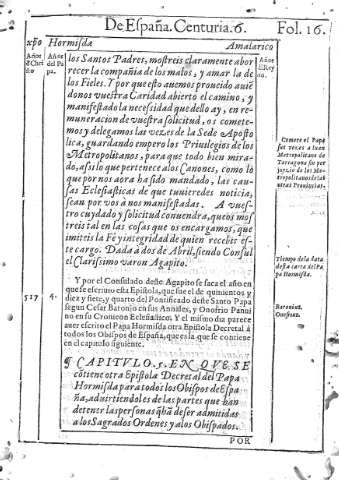 De España. Centuria. 6. Fol. 16.
xpo Hormisda Amalarico
Años d Chri sto
Años del Pa pa.
Años d Rey no
los Santos Padres, mostreis claramente abor
recer la compañia de los malos, y amar la de
los Fieles. Y por que esto auemos proueido auiē
donos vuestra Caridad abierto el camino, y
manifestado la necesidad que dello ay, en re-
muneracion de vuestra solicitud, os comete-
mos y delegamos las vezes de la Sede Aposto
lica, guardando empero los Priuilegios de los
Metropolitanos, para que todo bien mira-
do, asi lo que pertenece a los Canones, como lo
que por nos aora ha sido mandado, las cau-
sas Eclesiasticas de que tuuieredes noticia,
sean por vos à nos manifestadas. A vues-
tro cuydado y solicitud conuendra, que os mos
treis tal en las cosas que os encargamos, que
imiteis la Fe y integridad de quien recebis es-
te cargo. Dada à dos de Abril, siendo Consul
el Clarissimo varon Agapito.
Comete el Papa
sus vezes a Iuan
Metropolitano de
Tarragona sin per
juyzio de los Me-
tropolitanos de las
otras Prouincias.
Tiempo de la data
desta carta del pa
pa Hormisda.
517 4.
Y por el Consulado deste Agapito se saca el año en
que se escriuio esta Epistola, que fue el de quinientos, y
diez y siete, y quarto del Pontificado deste Santo Papa
segun Cesar Baronio en sus Annales, y Onofrio Panui
no en su Cronicon Eclesiastico. Y el mismo dia parece
auer escrito el Papa Hormisda otra Epistola Decretal à
todos los Obispos de España, que es la que se contiene
en el capitulo siguiente.
Baronius.
Onofrius.
¶ CAPITVLO. 5. EN QVE SE
cōtiene otra Epistola Decretal del Papa
Hormisda para todos los Obispos de Espa
ña, aduirtiendoles de las partes que han
de tener las personas q̄ hā de ser admitidas
a los Sagrados Ordenes y a los Obispados.
POR